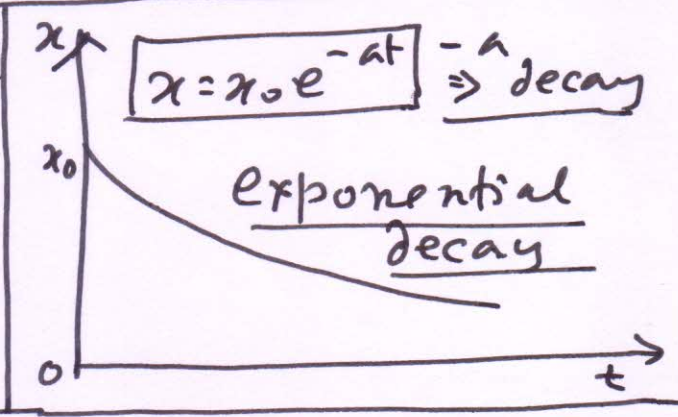 x
x = x₀ e^{-at} -a ⇒ decay
x₀
exponential
decay
0
t